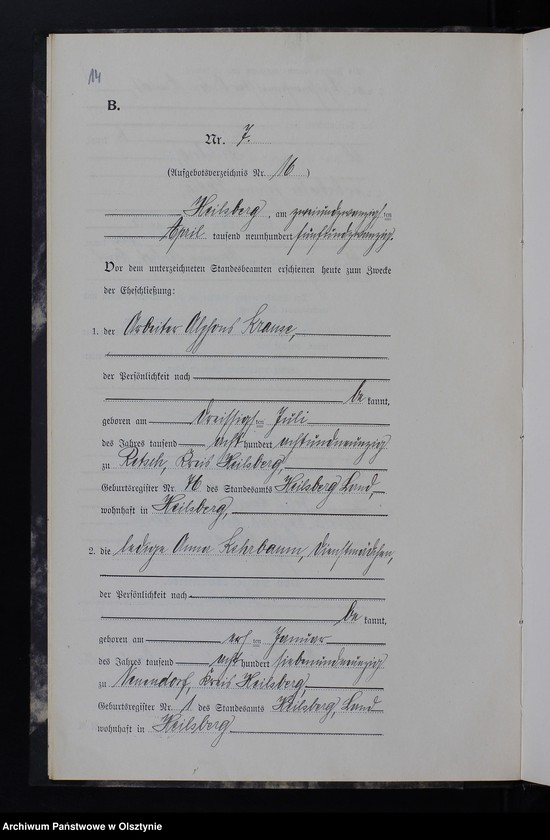 14
B.
Nr. 7.
(Aufgebotsverzeichnis Nr. 16)
Heilsberg, am zweiundzwanzigsten
April tausend neunhundert fünfundzwanzig.
Vor dem unterzeichneten Standesbeamten erschienen heute zum Zwecke
der Eheschließung:
1. der Arbeiter Alphons Krause,
der Persönlichkeit nach
bekannt,
geboren am dreissigsten Juli
des Jahres tausend achthundert achtundneunzig
zu Retsch, Kreis Heilsberg,
Geburtsregister Nr. des Standesamts Heilsberg Land,
wohnhaft in Heilsberg,
2. die ledige Anna Kehrbaum, Dienstmädchen,
der Persönlichkeit nach
bekannt,
geboren am ersten Januar
des Jahres tausend achthundert siebenundneunzig
zu Neuendorf, Kreis Heilsberg,
Geburtsregister Nr. 1 des Standesamts Heilsberg, Land
wohnhaft in Heilsberg
Archiwum Państwowe w Olsztynie